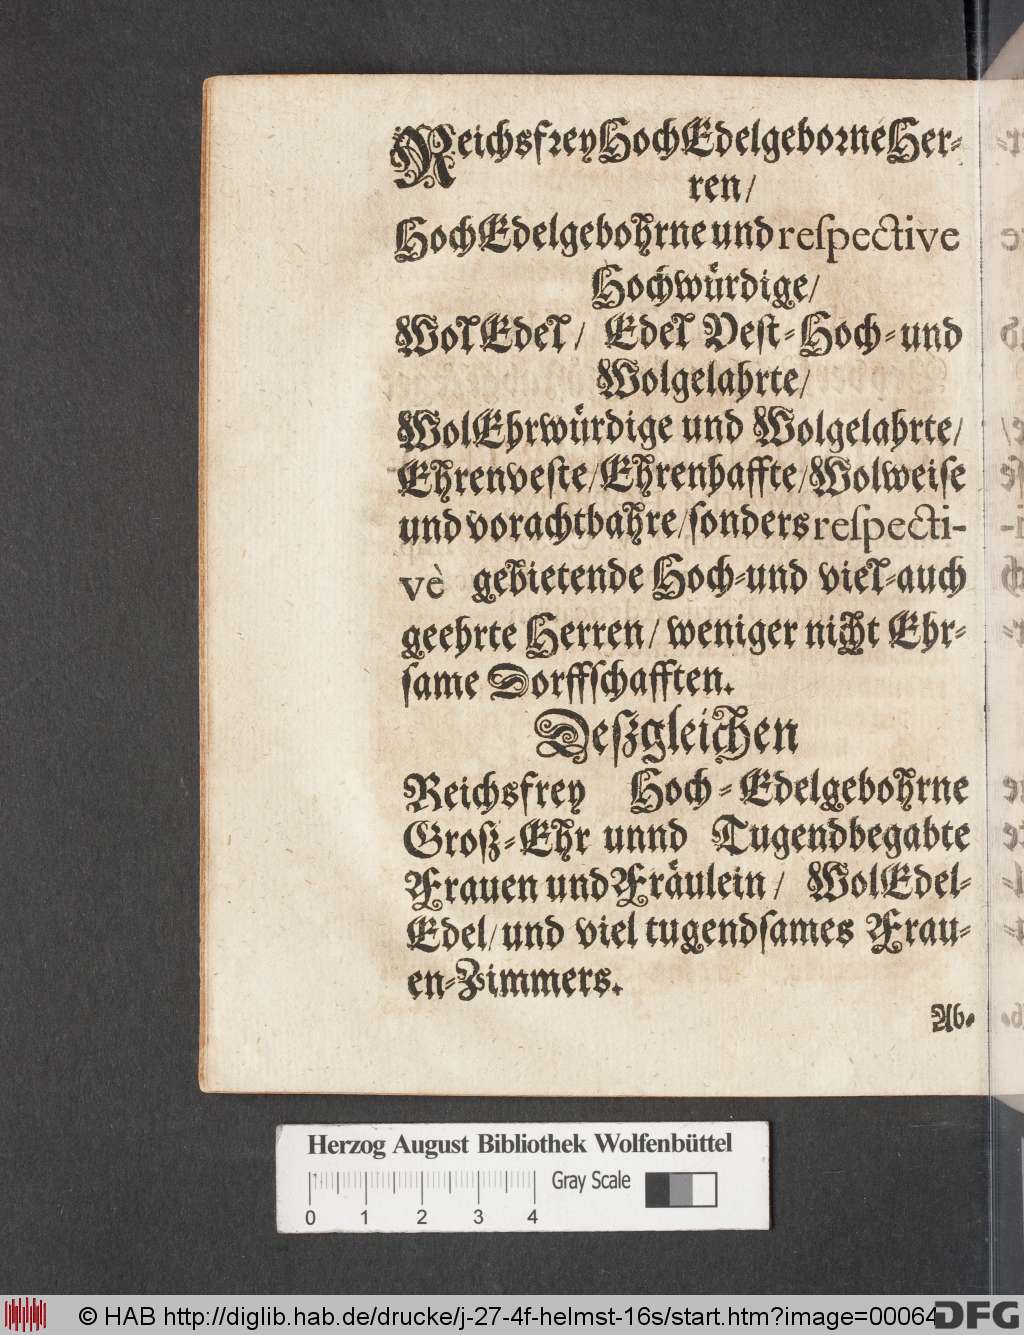 ReichsfreyHochEdelgeborneHer-
ren/
HochEdelgebohrne und reſpective
Hochwürdige/
WolEdel/ Edel Veſt-Hoch-und
Wolgelahrte/
WolEhrwürdige und Wolgelahrte/
Ehrenveſte/Ehrenhaffte/Wolweiſe
und vorachtbahre/ſonders reſpecti-
vè gebietende Hoch-und viel-auch
geehrte Herren/ weniger nicht Ehr-
ſame Dorffſchafften.
Deßgleichen
Reichsfrey Hoch-Edelgebohrne
Groß-Ehr unnd Tugendbegabte
Frauen und Fräulein/ WolEdel-
Edel/ und viel tugendſames Frau-
en-Zimmers.
Ab-
Herzog August Bibliothek Wolfenbüttel
Gray Scale
0 1 2 3 4
© HAB http://diglib.hab.de/drucke/j-27-4f-helmst-16s/start.htm?image=00064
DFG